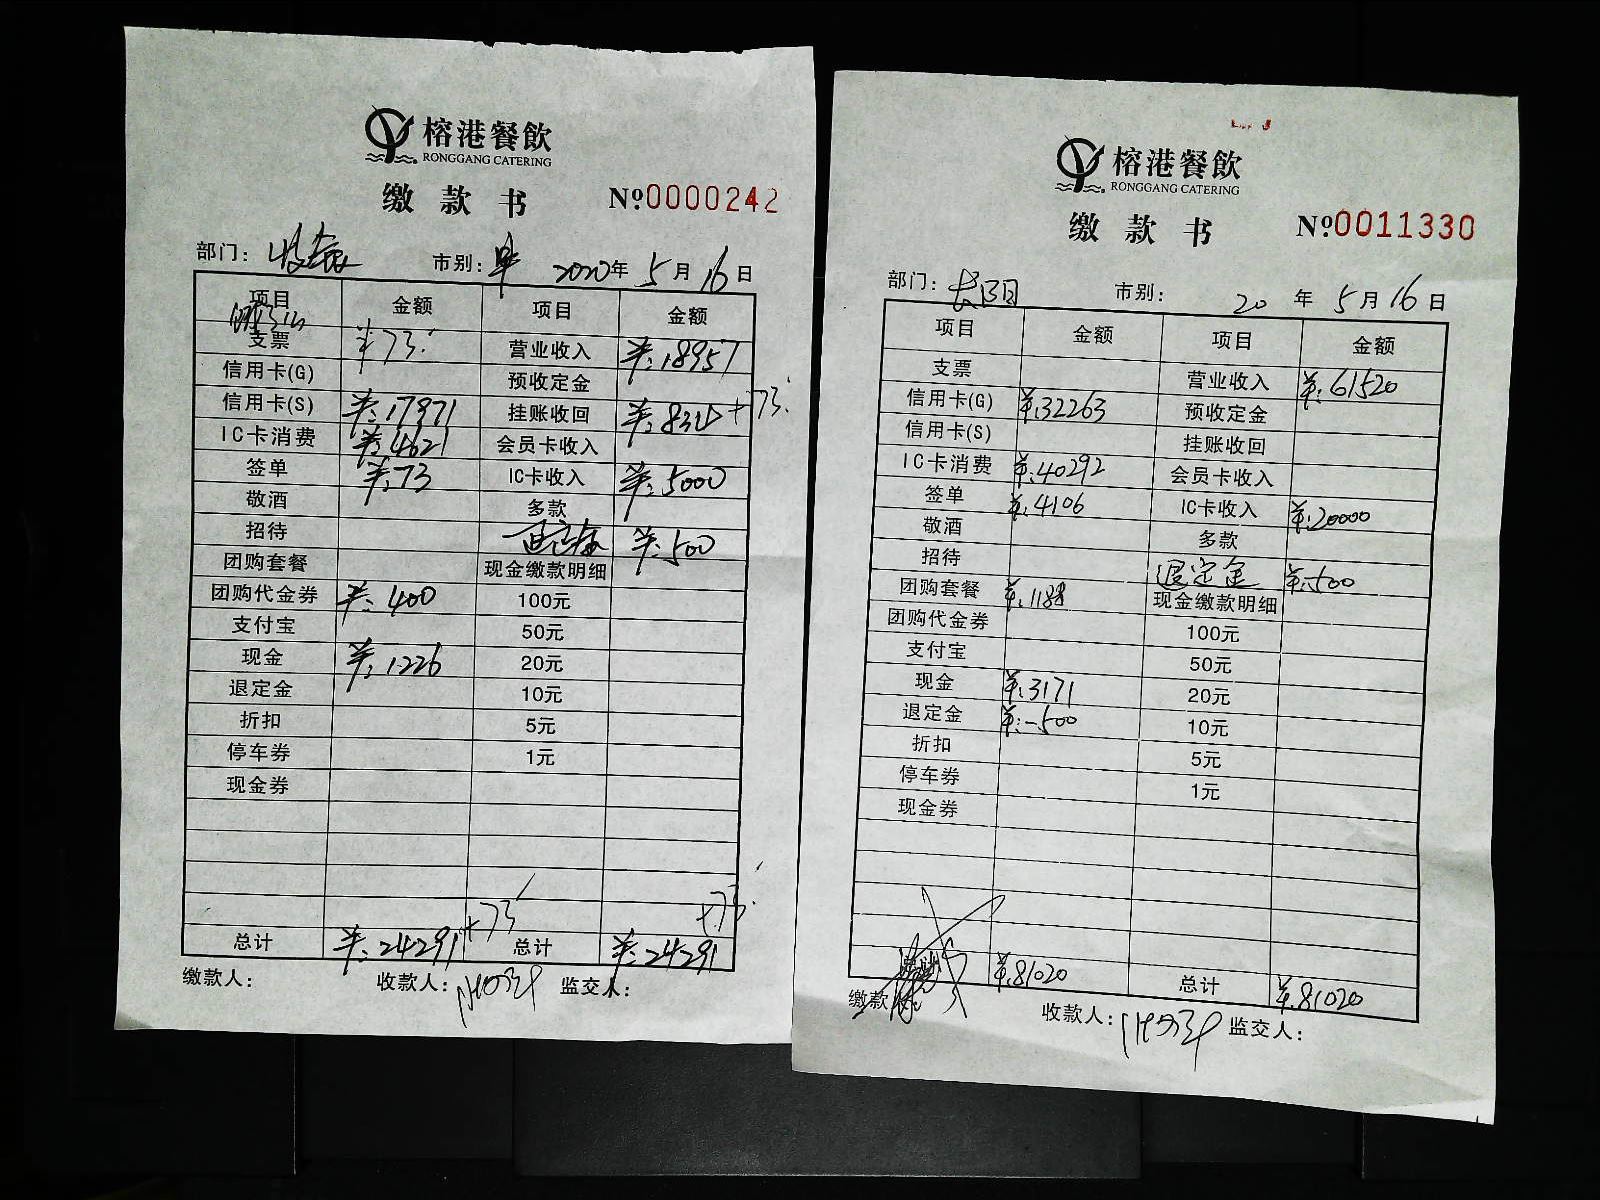 榕港餐飲
RONGGANG CATERING
缴款书 №0000242
部门： 市别： 2020年 5月 16日
项目 金额 项目 金额
支票 ¥73. 营业收入 ¥:18957
信用卡(G) 预收定金
信用卡(S) ¥:17971 挂账收回 ¥:834 +73.
IC卡消费 ¥:4621 会员卡收入
签单 ¥:73 IC卡收入 ¥:5000
敬酒 多款
招待 ¥:500
团购套餐 现金缴款明细
团购代金券 ¥:400 100元
支付宝 50元
现金 ¥:1226 20元
退定金 10元
折扣 5元
停车券 1元
现金券
+73 +73.
总计 ¥:24291 总计 ¥:24291
缴款人： 收款人： 监交人：
榕港餐飲
RONGGANG CATERING
缴款书 №0011330
部门： 市别： 20 年 5月16日
项目 金额 项目 金额
支票 营业收入 ¥:61520
信用卡(G) ¥:32263 预收定金
信用卡(S) 挂账收回
IC卡消费 ¥:40292 会员卡收入
签单 ¥:4106 IC卡收入 ¥:20000
敬酒 多款
招待 退定金 ¥:-500
团购套餐 ¥:1188 现金缴款明细
团购代金券 100元
支付宝 50元
现金 ¥:3171 20元
退定金 ¥:-500 10元
折扣 5元
停车券 1元
现金券
¥:81020 总计 ¥:81020
缴款 收款人： 监交人：